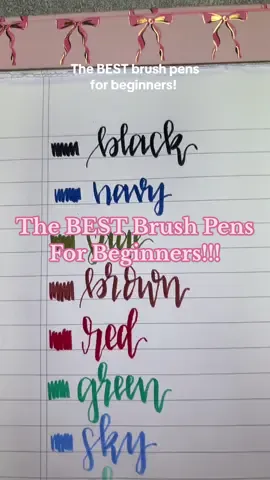 The BEST brush pens
for beginners!
black
navy
The BEST Brush Pens
For Beginners!!!
brown
red
green
sky